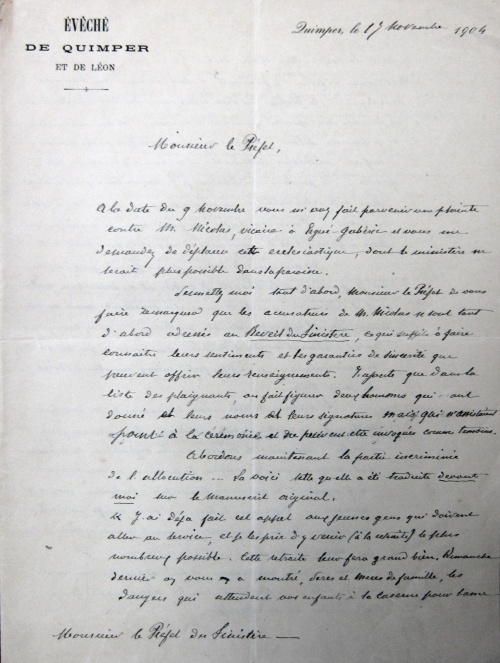 ÉVÊCHÉ
DE QUIMPER
ET DE LÉON
Quimper, le 17 Novembre 1904
Monsieur le Préfet,
A la date du 9 Novembre vous m'avez fait parvenir une plainte
contre M. Nicolas, vicaire à Ergué-Gabéric et vous me
demandez de déplacer cet ecclésiastique, dont le ministère ne
serait plus possible dans la paroisse.
Permettez moi tout d'abord, Monsieur le Préfet de vous
faire remarquer que les accusateurs de M. Nicolas se sont tout
d'abord adressés au Réveil du Finistère, ce qui suffit à faire
connaître leurs sentiments et les garanties de sincérité que
peuvent offrir leurs renseignements. J'ajoute que dans la
liste des plaignants, on fait figurer deux hommes qui ont
donné et leurs noms et leurs signatures mais qui n'assistaient
point à la cérémonie et ne peuvent être invoqués comme témoins.
Abordons maintenant la partie incriminée
de l'allocution ... La voici telle qu'elle a été traduite devant
moi sur le manuscrit original.
« J'ai déjà fait cet appel aux jeunes gens qui doivent
aller au service, et je les prie d'y venir (à la retraite) le plus
nombreux possible. Cette retraite leur fera grand bien. Dimanche
dernier on vous a montré, pères et mères de famille, les
dangers qui attendent vos enfants à la caserne pour l'âme
Monsieur le Préfet du Finistère —